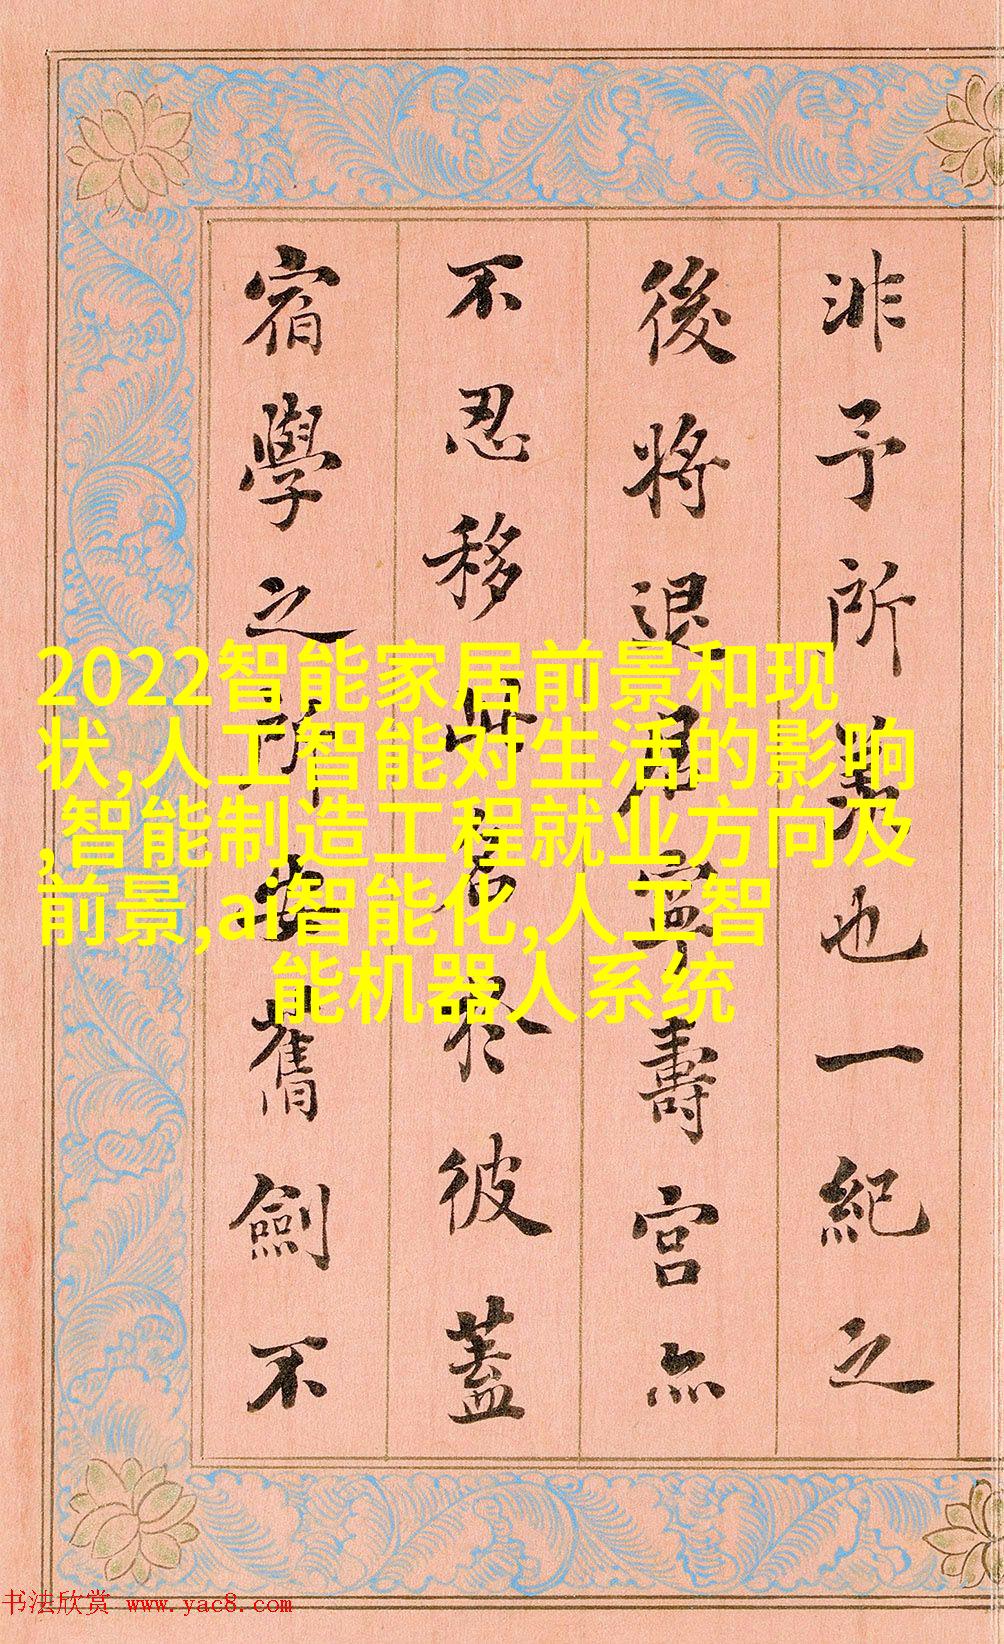 非予所也一紀之
後將退居寧壽宮亦
不忍移此於彼蓋
宿學之所安舊劍不
2022智能家居前景和现
状,人工智能对生活的影响
,智能制造工程就业方向及
前景,ai智能化,人工智
能机器人系统
书法欣赏 www.yac8.com